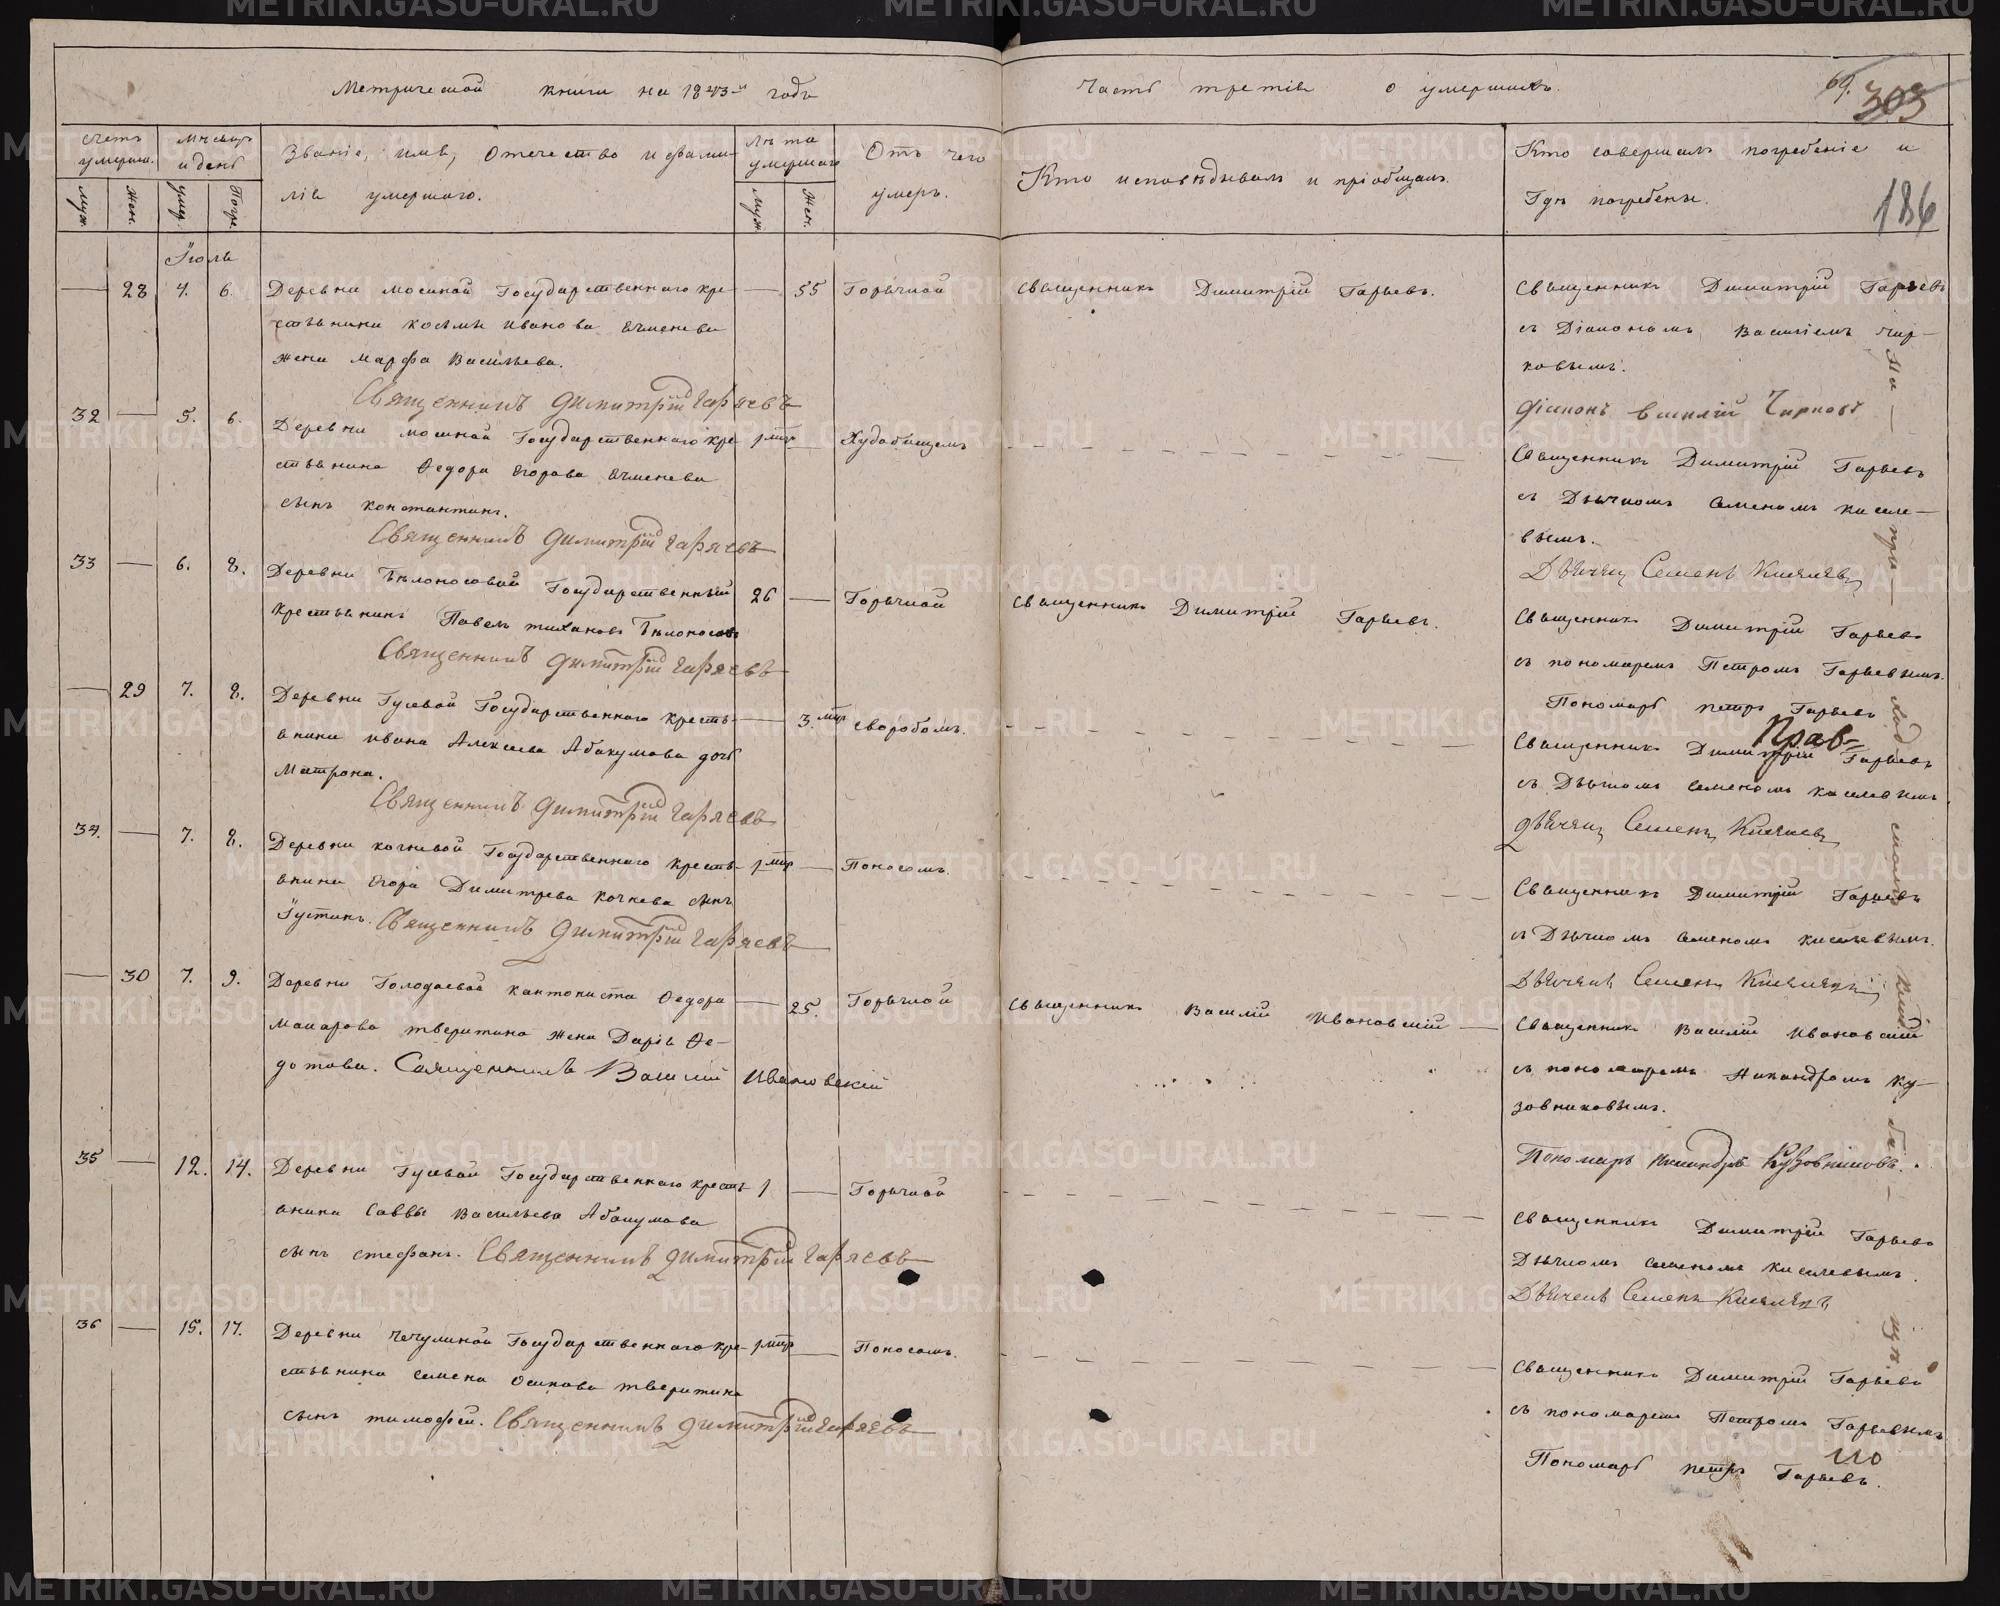 METRIKI.GASO-URAL.RU
Метрической книги на 1843й годъ
Часть третія о умершихъ.
69. 303
186
Счетъ умерш. Муж. Жен.
Мѣсяцъ и день Умер. Погре.
Званіе, имя, Отечество и фами-
лія умершаго.
Лѣта умершаго Муж. Жен.
Отъ чего умеръ.
Кто исповѣдывалъ и пріобщалъ.
Кто совершалъ погребеніе и
Гдѣ погребены.
Іюль
— 28 4. 6. — 55 Горячкой
Деревни Мосиной Государственнаго кре-
стьянина Косьмы Иванова Ячменева
жена Марфа Васильева.
Священникъ Димитрій Гаряевъ
Священникъ Димитрій Гаряевъ.
Священникъ Димитрій Гаряевъ
съ Діакономъ Василіемъ Чир-
ковымъ.
Діаконъ Василій Чирковъ
32 — 5. 6. 1 мѣс — Худобищемъ
Деревни Мосиной Государственнаго кре-
стьянина Ѳедора Егорова Ячменева
сынъ Константинъ.
Священникъ Димитрій Гаряевъ
Священникъ Димитрій Гаряевъ
съ Дьячкомъ Семеномъ Киселе-
вымъ.
Дьячекъ Семенъ Киселевъ
33 — 6. 8. 26 — Горячкой
Деревни Бѣлоносовой Государственный
крестьянинъ Павелъ Тихановъ Бѣлоносовъ
Священникъ Димитрій Гаряевъ
Священникъ Димитрій Гаряевъ.
Священникъ Димитрій Гаряевъ
съ пономаремъ Петромъ Гаряевымъ.
Пономарь Петръ Гаряевъ
— 29 7. 8. — 3. мѣс Своробомъ.
Деревни Гусевой Государственнаго кресть-
янина Ивана Алексеева Абакумова дочь
Матрона.
Священникъ Димитрій Гаряевъ
Священникъ Димитрій Гаряевъ
съ Дьячкомъ Семеномъ Киселевымъ.
Дьячекъ Семенъ Киселевъ
34. — 7. 8. 1 мѣс — Поносомъ.
Деревни Кочневой Государственнаго кресть-
янина Егора Димитрева Кочнева сынъ
Іустинъ. Священникъ Димитрій Гаряевъ
Священникъ Димитрій Гаряевъ
съ Дьячкомъ Семеномъ Киселевымъ.
Дьячекъ Семенъ Киселевъ
— 30 7. 9. — 25. Горячкой
Деревни Голодаевой кантониста Ѳедора
Макарова Тверитина жена Дарія Ѳе-
дотова. Священникъ Василій Ивановскій
Священникъ Василій Ивановскій
Священникъ Василій Ивановскій
съ пономаремъ Никандромъ Ку-
зовниковымъ.
Пономарь Никандръ Кузовниковъ.
35 — 12. 14. 1 — Горячкой
Деревни Гусевой Государственнаго кресть-
янина Саввы Васильева Абакумова
сынъ Стефанъ. Священникъ Димитрій Гаряевъ
Священникъ Димитрій Гаряевъ
Дьячкомъ Семеномъ Киселевымъ.
Дьячекъ Семенъ Киселевъ
36 — 15. 17. 1 мѣс — Поносомъ.
Деревни Чечулиной Государственнаго кре-
стьянина Семена Осипова Тверитина
сынъ Тимофей. Священникъ Димитрій Гаряевъ
Священникъ Димитрій Гаряевъ
съ пономаремъ Петромъ Гаряевымъ
Пономарь Петръ Гаряевъ.
Прав-